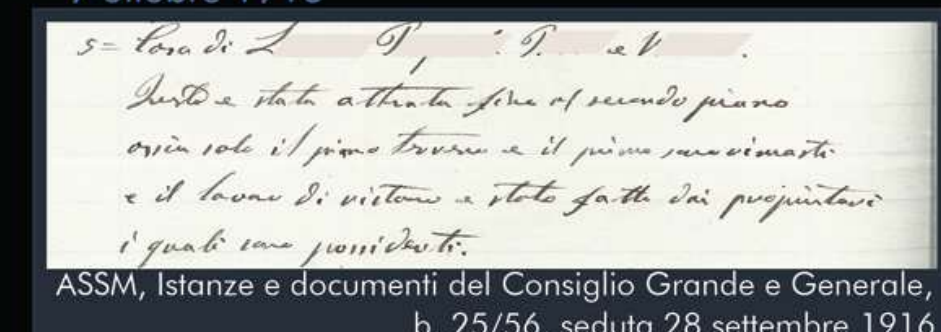 ottobre
5= Casa di L P . P. e V .
Questa e stata atterrata fino al secondo piano
ossia solo il piano terreno e il primo sono rimasti
e il lavoro di e stato fatto dai proprietari
i quali sono possidenti.
ASSM, Istanze e documenti del Consiglio Grande e Generale,
b. 25/56, seduta 28 settembre 1916